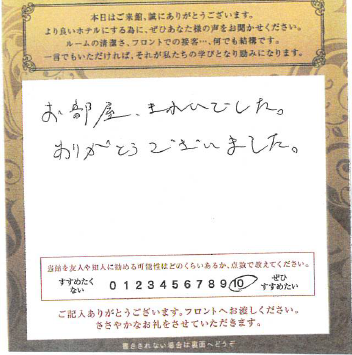 本日はご来館、誠にありがとうございます。
より良いホテルにする為に、ぜひあなた様の声をお聞かせください。
ルームの清潔さ、フロントでの接客…、何でも結構です。
一言でもいただければ、それが私たちの学びとなり励みになります。
お部屋、きれいでした。
ありがとうございました。
当館を友人や知人に勧める可能性はどのくらいあるか、点数で教えてください。
すすめたくない 0 1 2 3 4 5 6 7 8 9 10 ぜひすすめたい
ご記入ありがとうございます。フロントへお渡しください。
ささやかなお礼をさせていただきます。
書ききれない場合は裏面へどうぞ